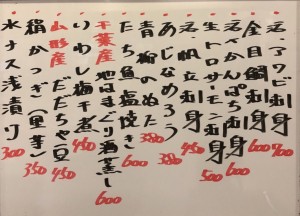 活・アワビ刺 700
金目鯛刺身 600
活・かんぱち刺身 600
生トロサーモン刺身 500
活・帆立刺身 450
あじなめろう 380
青柳のぬた 380
たち魚塩焼き 600
千葉産 地はまぐり酒蒸し 600
いわし梅干煮 450
山形産 だだちゃ豆 450
絹かつぎ(里芋) 350
水ナス浅漬り 300